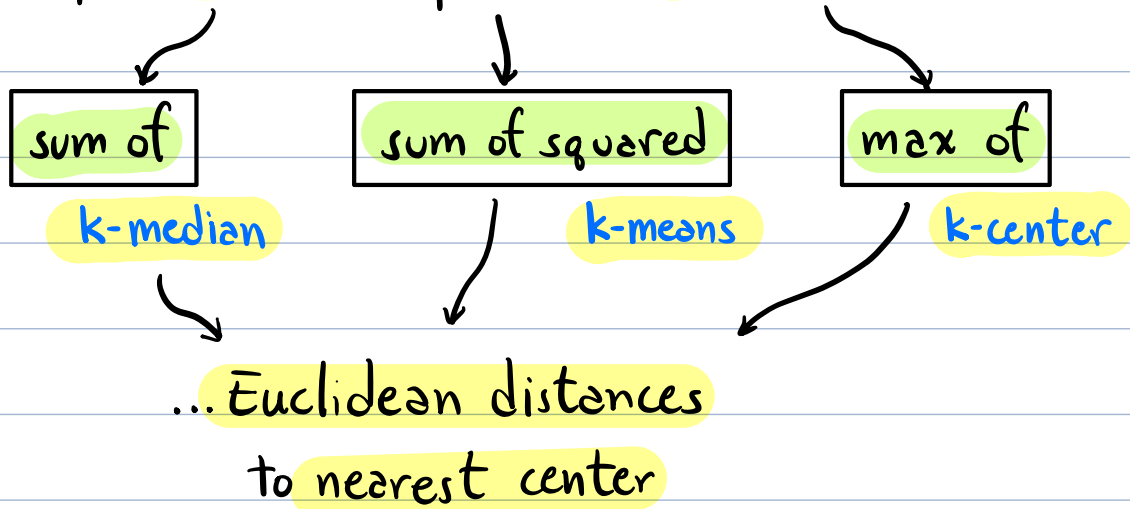 sum of sum of squared max of
k-median k-means k-center
... Euclidean distances
to nearest center